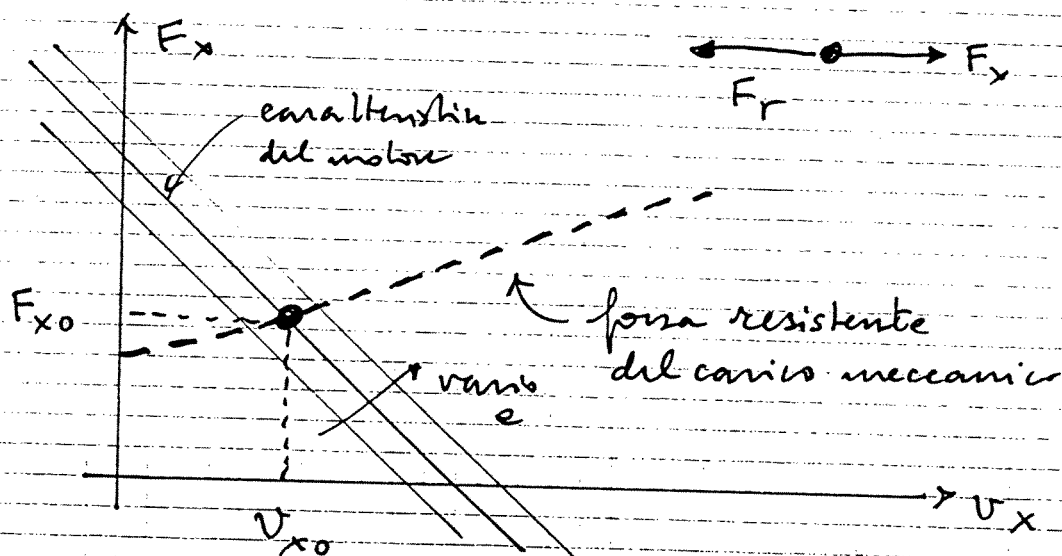 F_x
F_r
F_x
caratteristica
del motore
F_xo
forza resistente
del carico meccanico
vario
e
v_xo
v_x